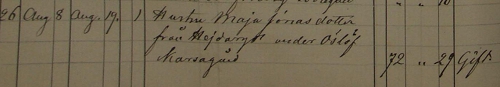 26 Aug 8 Aug. 19. 1 Hustru Maja Jonasdotter
från Hejdaryd under Oslöf
Marsagård 72 " 29 Gift